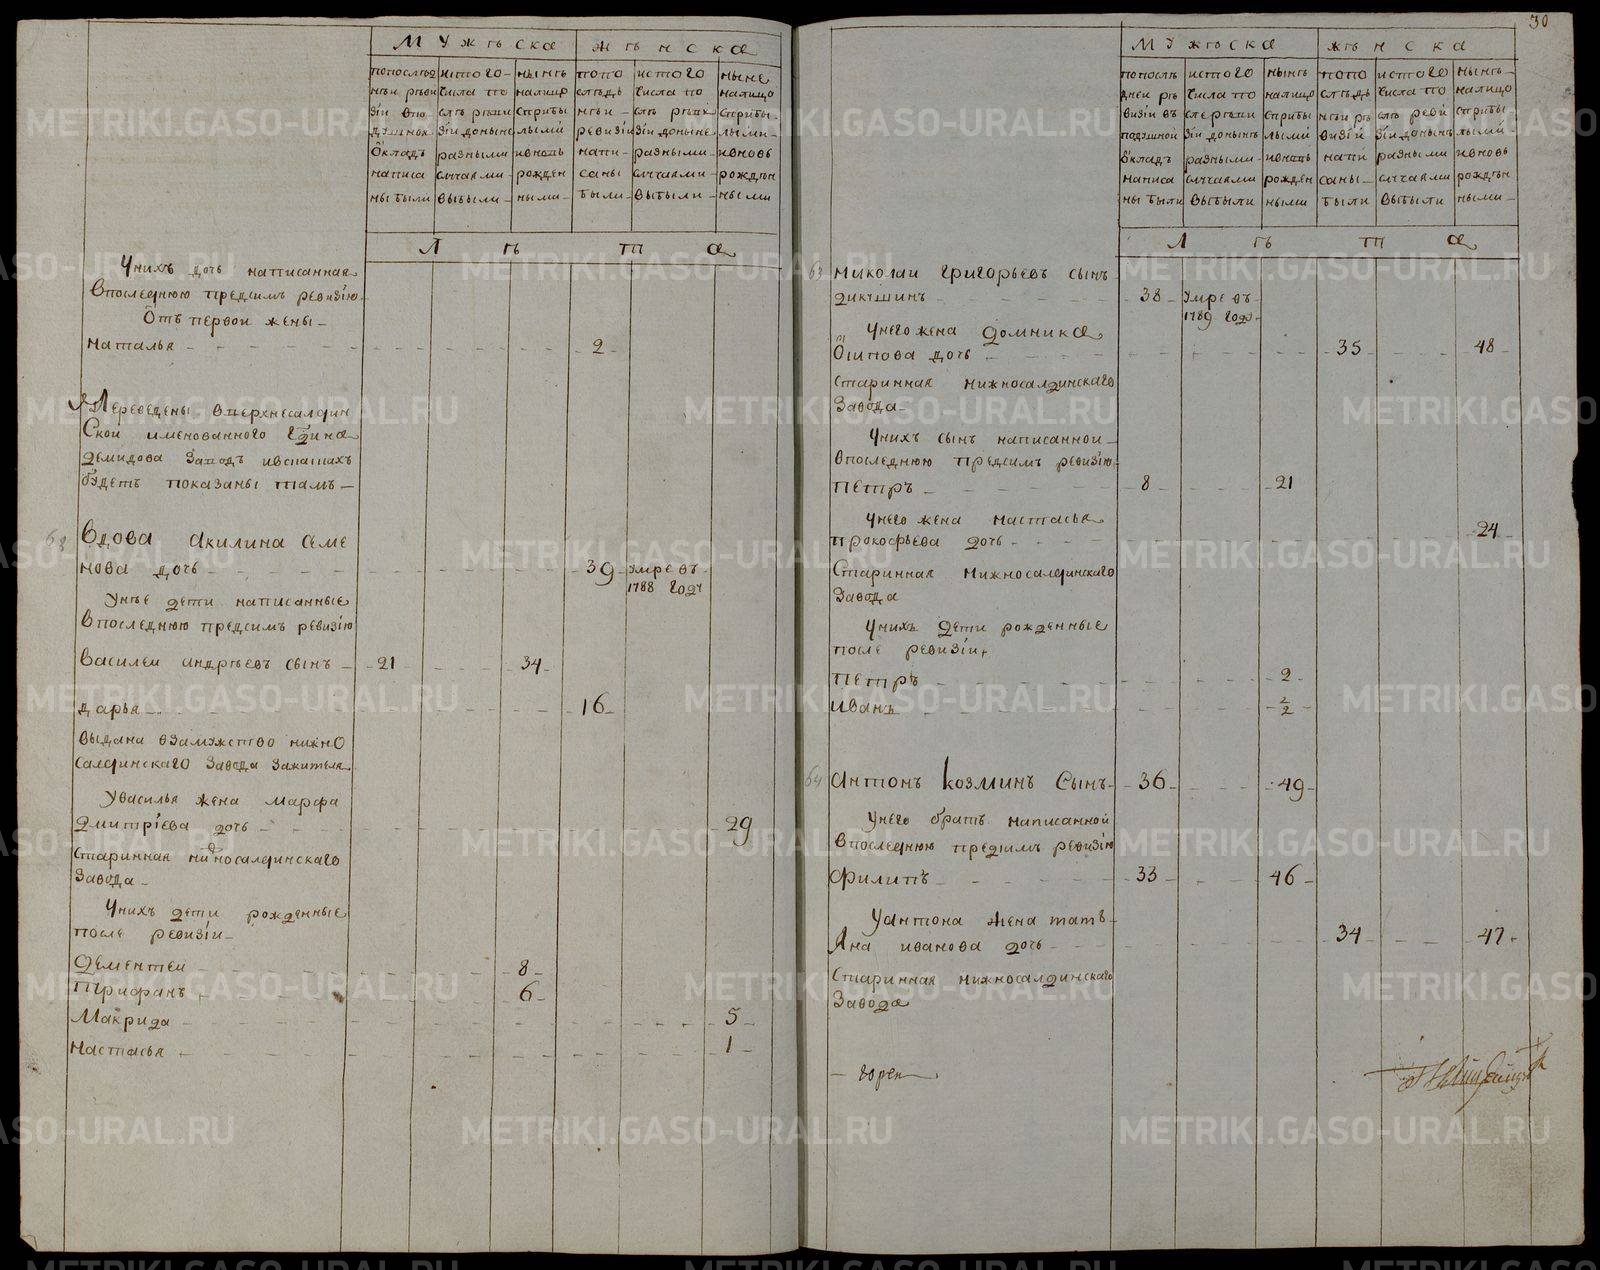 Мужѣска
жѣнска
попослѣд
нѣи рѣви
зіи впо
душнои
Окладъ
написа
ны были
истого
числа по
слѣ рѣви
зіи донынѣ
разными
случаями
выбыли
нынѣ
налицо
сприбы
лыми
ивновь
рожден
ными
попо
слѣдъ
нѣи
ревизіи
напи
саны
были
истого
числа по
слѣ рѣви
зіи донынѣ
разными
случаями
выбыли
ныне
налицо
сприбы
лыми
ивновь
рождѣн
ными
Лѣта
Унихъ дочь написанная
Впоследнюю предсимъ ревизію
Отъ первои жены
наталья 2
Переведены вверхнесалдин
Скои именованного Гдина
демидова Заводъ ивспискахъ
будетъ показаны тамъ
68 Вдова Акилина семе
нова дочь 39 умре въ
1788 Году
Унѣе дети написанные
Впоследнюю предсимъ ревизію
василеи андрѣевъ сынъ 21 34
дарья 16
выдана взамужство нижно
салдинскаго Завода Зажителя
Увасилья жена марфа
дмитріева дочь 29
старинная нижносалдинскаго
Завода
Унихъ дети рожденные
после ревизіи
дементеи 8
Трифанъ 6
Макрида 5
настасья 1
30
Мужѣска
жѣнска
попослѣ
днеи рѣ
визіи въ
подушной
Окладъ
написа
ны были
истого
числа по
слеревизи
зіи донынѣ
разными
случаями
выбыли
нынѣ
налицо
сприбы
лыми
ивновь
рожден
ными
попо
слѣдъ
нѣи рѣ
визіи
напи
саны
были
истого
числа по
слѣ реви
зіи донынѣ
разными
случаями
выбыли
нынѣ
налицо
сприбы
лыми
ивновь
рождѣн
ными
Лѣта
63 николаи григорьевъ сынъ
дикушинъ 38 Умре въ
1789 году
Унего жена домника
Осипова дочь 35 48
старинная нижносалдинскаго
Завода
Унихъ сынъ написанной
впоследнюю предсимъ ревизію
петръ 8 21
Унего жена настасья
прокофьева дочь 24
Старинная Нижносалдинскаго
Завода
Унихъ дети рожденные
после ревизіи
петръ 2
иванъ 1/2
64 антонъ козминъ Сынъ 36 49
Унего братъ написанной
впоследнюю предсимъ ревизію
филипъ 33 46
Уантона жена татъ
яна иванова дочь 34 47
Старинная нижносалдинскаго
Завода
METRIKI.GASO-URAL.RU